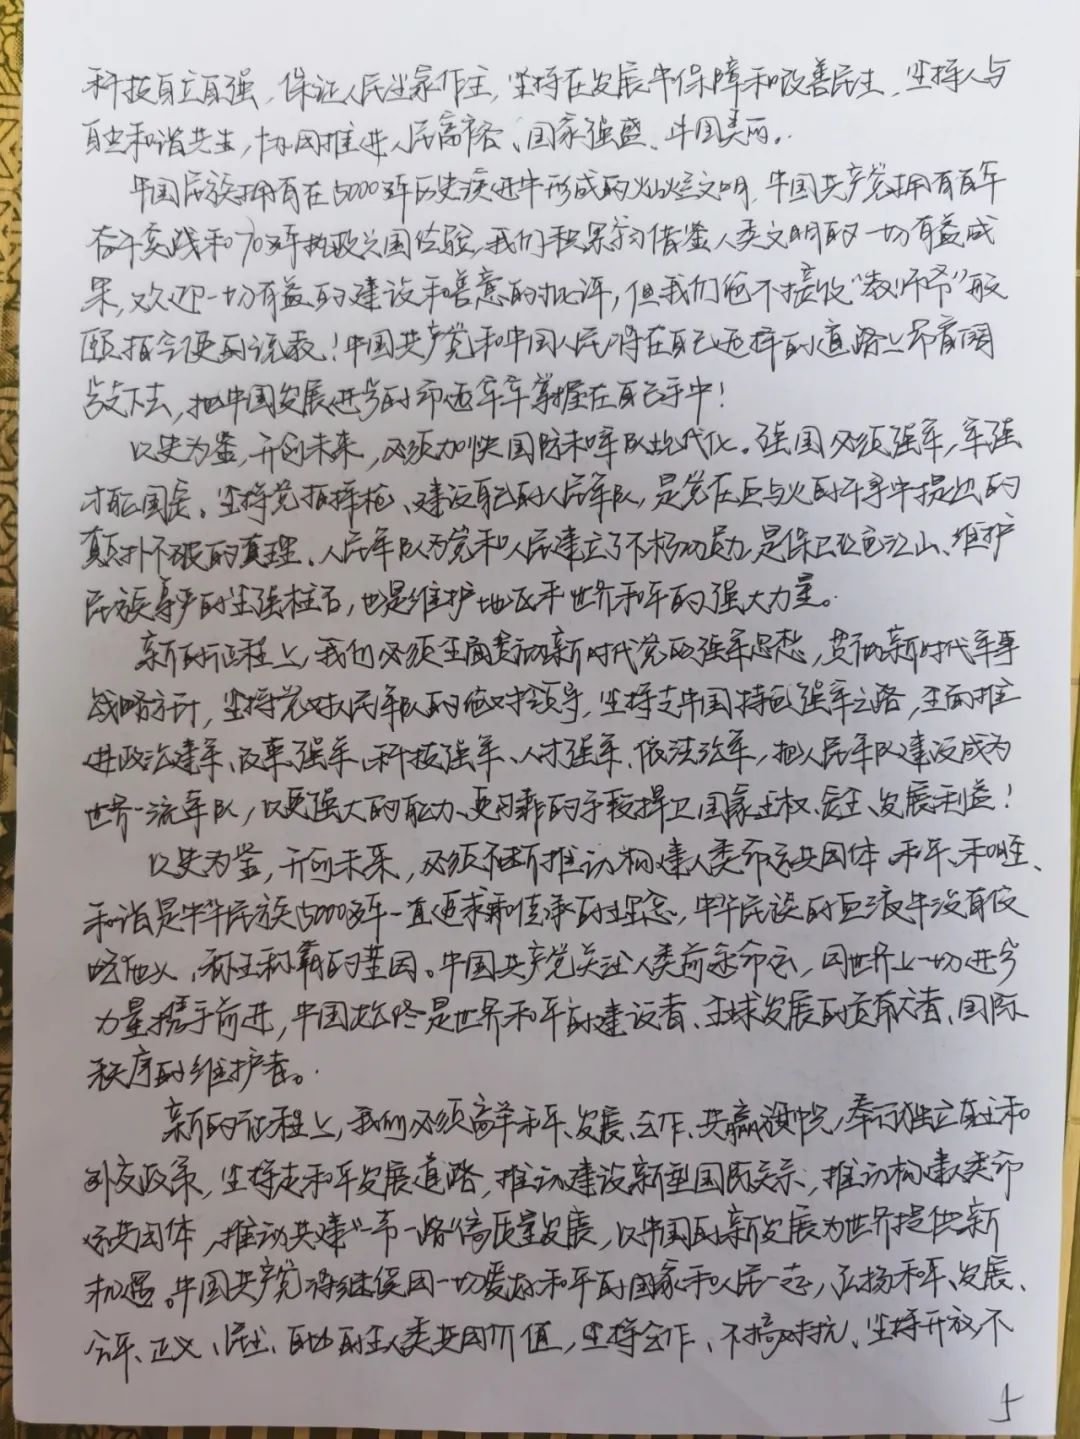 科技自立自强,保证人民当家作主,坚持在发展中保障和改善民生,坚持人与
自然和谐共生,协同推进人民富裕、国家强盛、中国美丽。
中国民族拥有在5000多年历史演进中形成的灿烂文明,中国共产党拥有百年
奋斗实践和70多年执政兴国经验,我们积累学习借鉴人类文明的一切有益成
果,欢迎一切有益的建设和善意的批评,但我们绝不接收“教师爷”般
颐指令使的说教!中国共产党和中国人民将在自己选择的道路上昂首阔
步走下去,把中国发展进步的命运牢牢掌握在自己手中!
以史为鉴,开创未来,必须加快国防和军队现代化。强国必须强军,军强
才能国安。坚持党指挥枪、建设自己的人民军队,是党在血与火的斗争中提出的
颠扑不破的真理、人民军队为党和人民建立了不朽功勋,是保卫红色江山、维护
民族尊严的坚强柱石,也是维护地区和世界和平的强大力量。
新的征程上,我们必须全面贯彻新时代党的强军思想,贯彻新时代军事
战略方针,坚持党对人民军队的绝对领导,坚持走中国特色强军之路,全面推
进政治建军、改革强军、科技强军、人才强军、依法治军,把人民军队建设成为
世界一流军队,以更强大的能力、更可靠的手段捍卫国家主权、安全、发展利益!
以史为鉴,开创未来,必须不断推动构建人类命运共同体。和平、和睦、
和谐是中华民族5000多年一直追求和传承的理念,中华民族的血液中没有侵
略他人、称王称霸的基因。中国共产党关注人类前途命运,同世界上一切进步
力量携手前进,中国始终是世界和平的建设者、全球发展的贡献者、国际
秩序的维护者。
新的征程上,我们必须高举和平、发展、合作、共赢旗帜,奉行独立自主和
外交政策,坚持走和平发展道路,推动建设新型国际关系,推动构建人类命
运共同体,推动共建“一带一路”高质量发展,以中国的新发展为世界提供新
机遇。中国共产党将继续同一切爱好和平的国家和人民一起,弘扬和平、发展、
公平、正义、民主、自由的全人类共同价值,坚持合作、不搞对抗、坚持开放、不
5